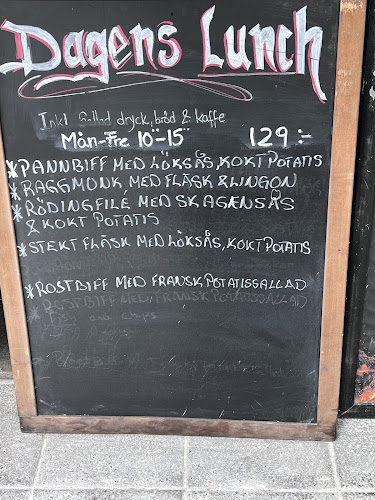 Dagens Lunch
Inkl Sallad dryck, bröd & kaffe
Mån-Fre 10-15 129:-
*PANNBIFF MED LÖKSÅS, KOKT POTATIS
*RAGGMONK, MED FLÄSK & LINGON
*RÖDINGFILÉ MED SKAGENSÅS
& KOKT POTATIS
*STEKT FLÄSK MED LÖKSÅS, KOKT POTATIS
*ROSTBIFF MED FRANSK POTATISSALLAD
*ROSTBIFF MED, FRANSK POTATISSALLAD